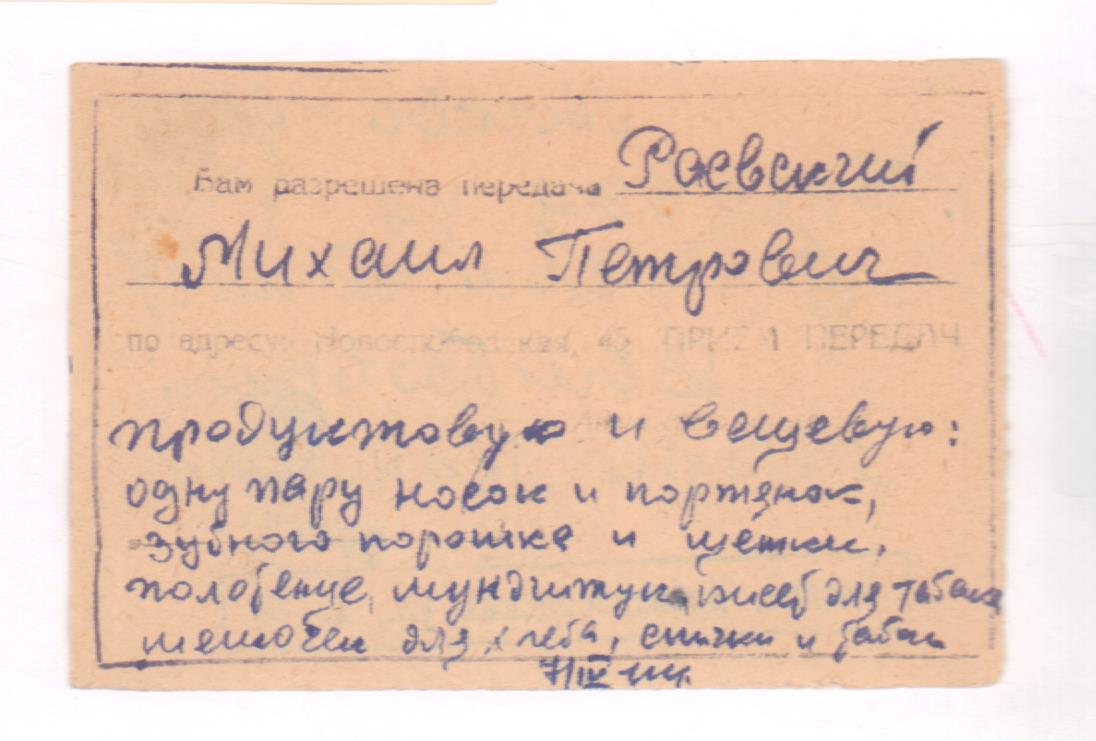 Вам разрешена передача Раевский
Михаил Петрович
по адресу: Новослободская, 45 ПРИЕМ ПЕРЕДАЧ
продуктовую и вещевую:
одну пару носок и портянок,
зубного порошка и щётки,
полотенце, мундштук, кисет для табака
мешочек для хлеба, спички и табак